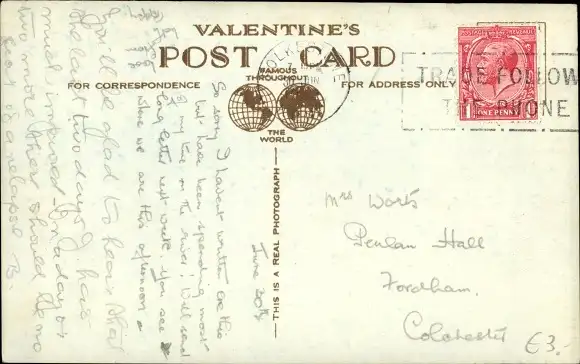 VALENTINE'S
POST CARD
FAMOUS
THROUGHOUT
FOR CORRESPONDENCE
FOR ADDRESS ONLY
THE
WORLD
THIS IS A REAL PHOTOGRAPH
POSTAGE REVENUE
ONE PENNY
TRADE FOLLOWS
THE PHONE
June 30th
So sorry I haven't written before this
but have been spending most
of my time on the river! Will send
long letter next week. You see
where we are this afternoon
You'll be glad to hear that
the last two days has
much improved - In a day or
two more there should be no
fear of a relapse B.
Mrs Worts
Penlan Hall
Fordham.
Colchester
£3.